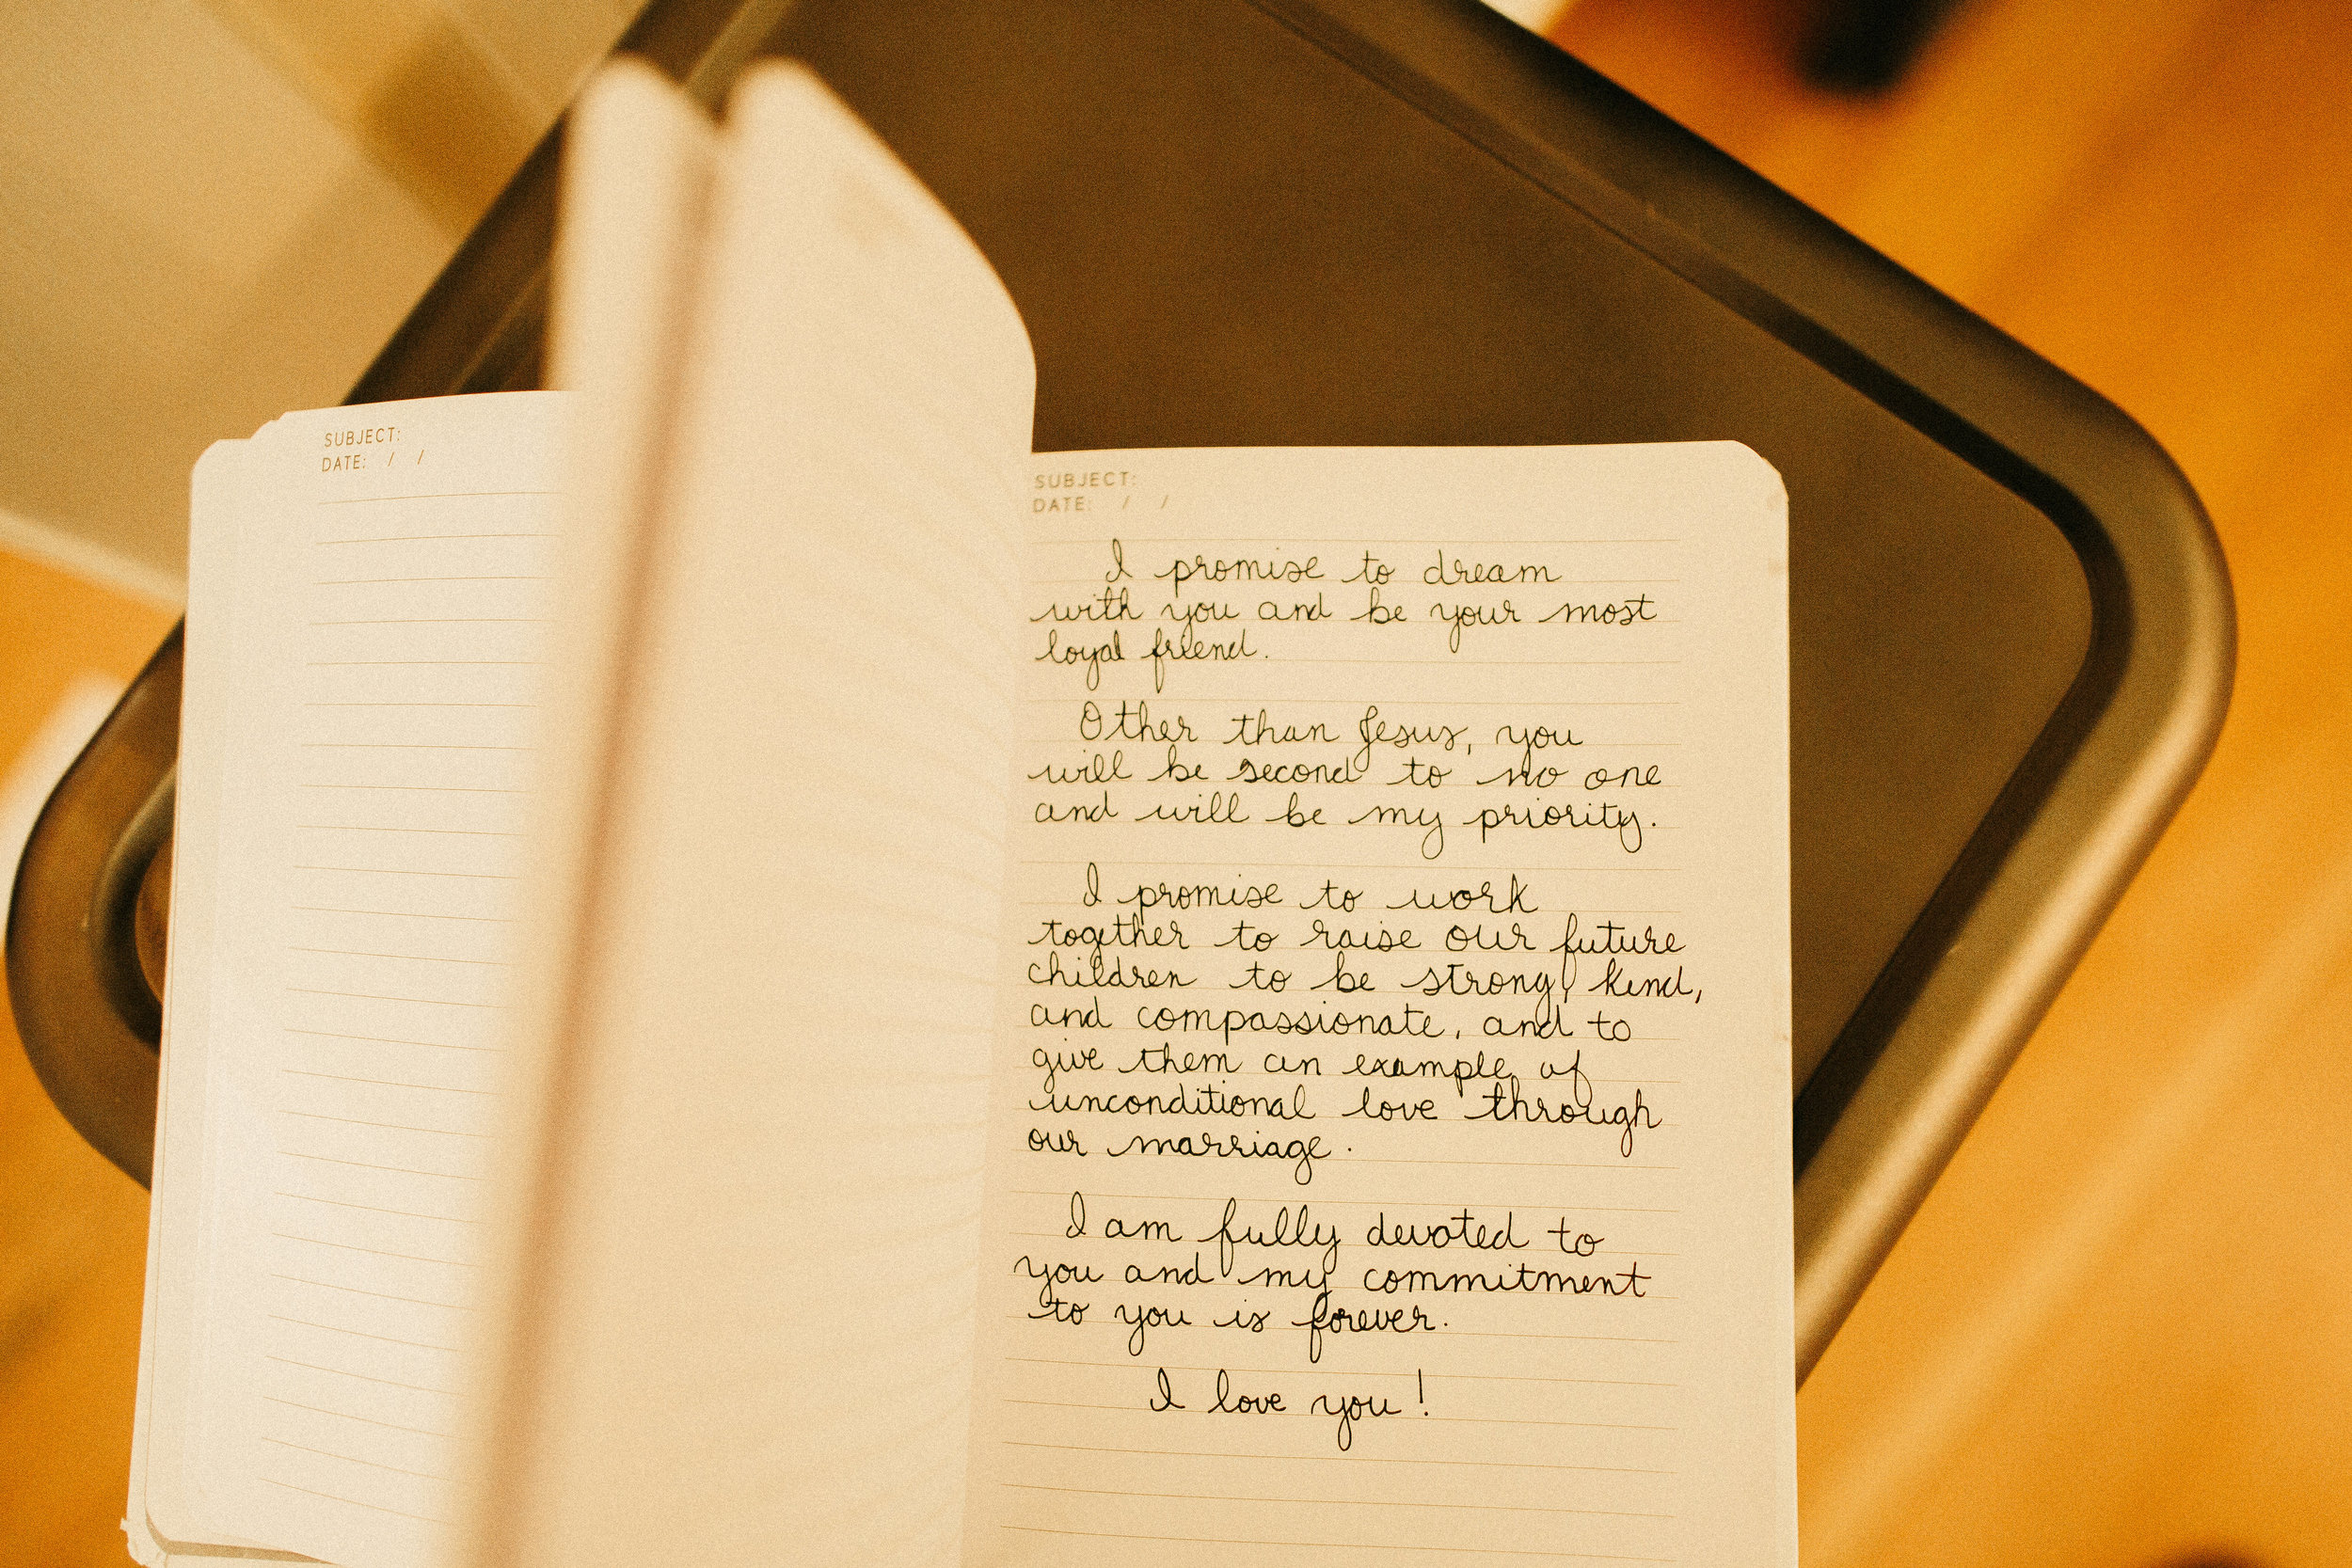 SUBJECT:
DATE: / /
SUBJECT:
DATE: / /
I promise to dream
with you and be your most
loyal friend.
Other than Jesus, you
will be second to no one
and will be my priority.
I promise to work
together to raise our future
children to be strong, kind,
and compassionate, and to
give them an example of
unconditional love through
our marriage.
I am fully devoted to
you and my commitment
to you is forever.
I love you!